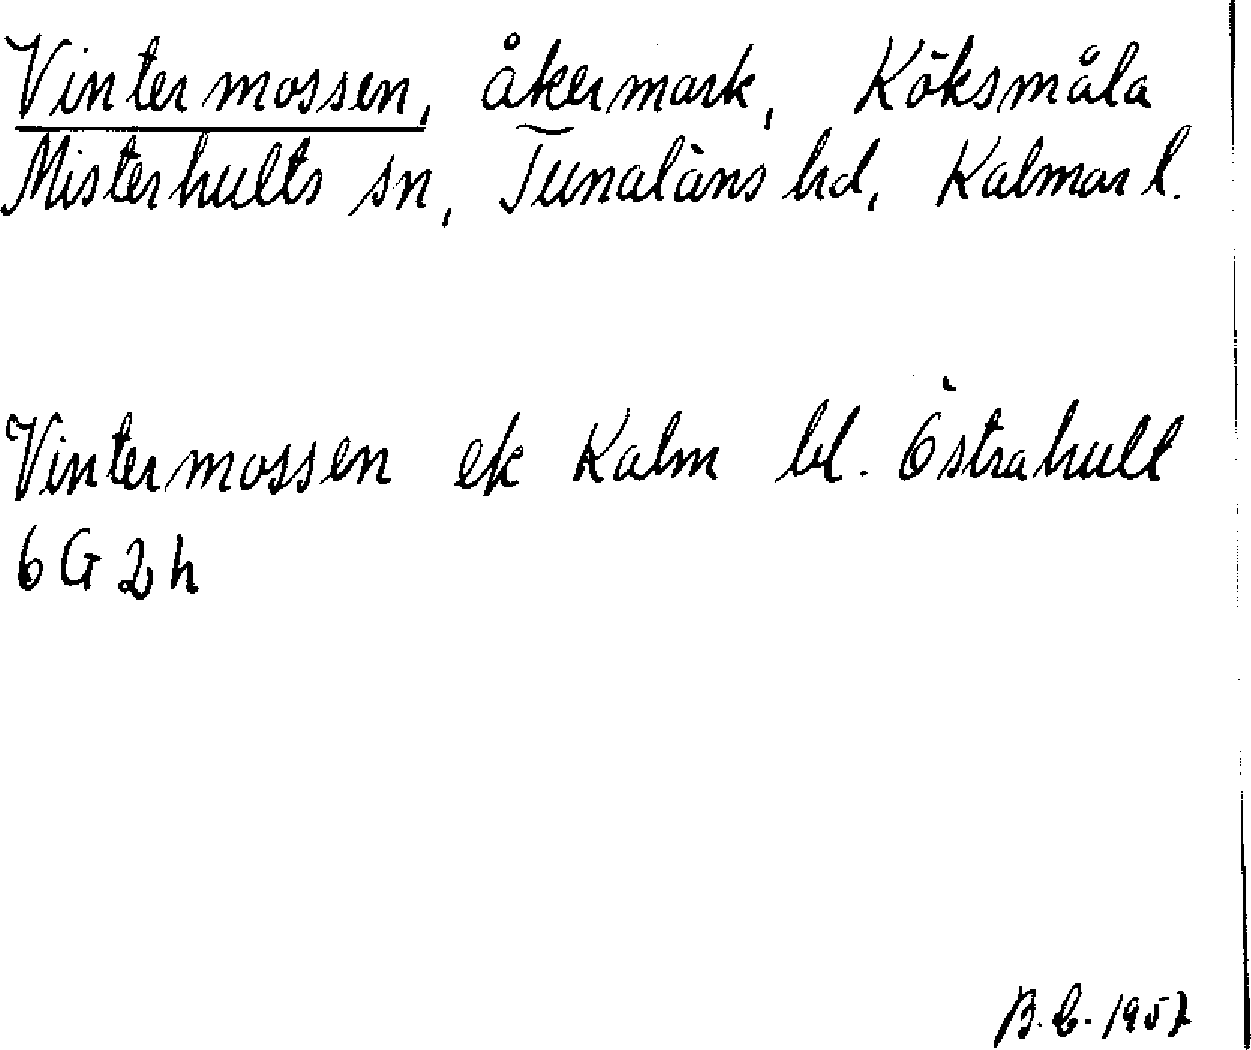 Vintermossen, åkermark, Köksmåla
Misterhults sn, Tunaläns hd, Kalmar l.
Vintermossen ek Kalm bl. Östrahult
6 G 2 h
B.E. 1957